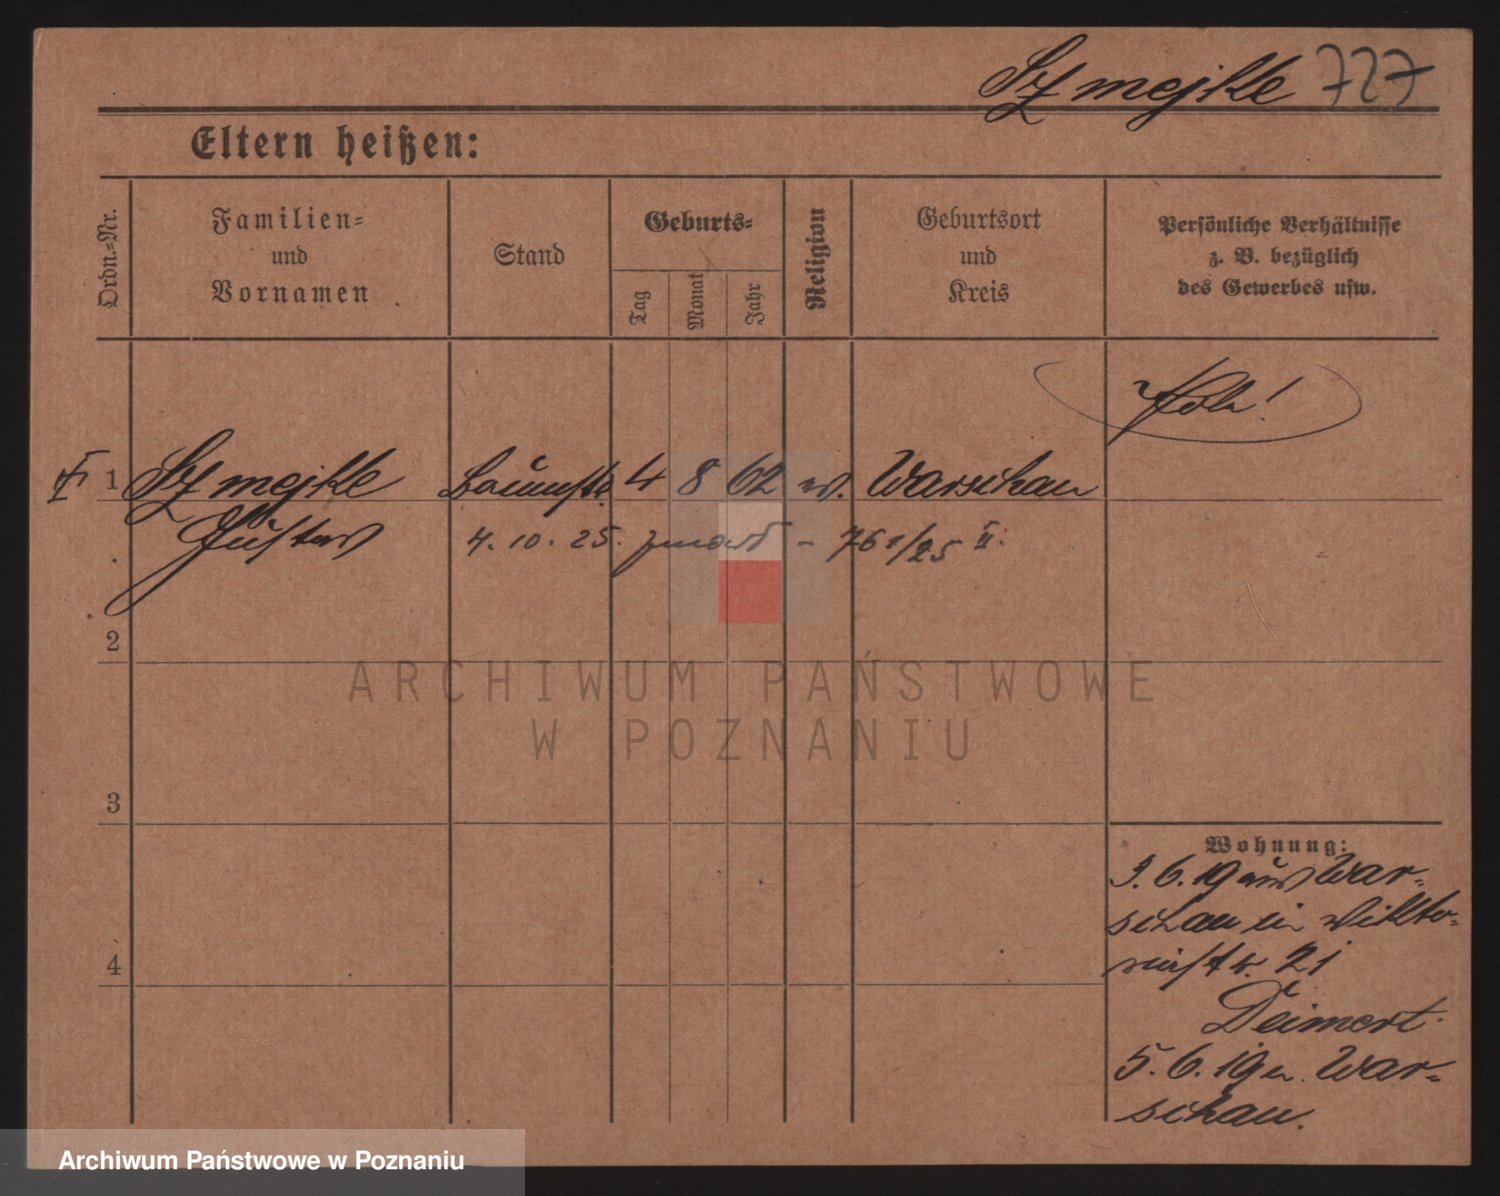 Szmejkle 727
Eltern heißen:
Ordn.-Nr.
Familien-
und
Vornamen
Stand
Geburts-
Tag
Monat
Jahr
Religion
Geburtsort
und
Kreis
Persönliche Verhältnisse
z. B. bezüglich
des Gewerbes usw.
1 Szmejkle 4 8 62 Warschau
Gustav 4. 10. 25. zmarł - 761/25 II.
2
3
4
Wohnung:
3. 6. 19 aus War-
schau in Vikto-
riastr. 21
Deimert.
5. 6. 19 n. War-
schau.
ARCHIWUM PAŃSTWOWE
W POZNANIU
Archiwum Państwowe w Poznaniu